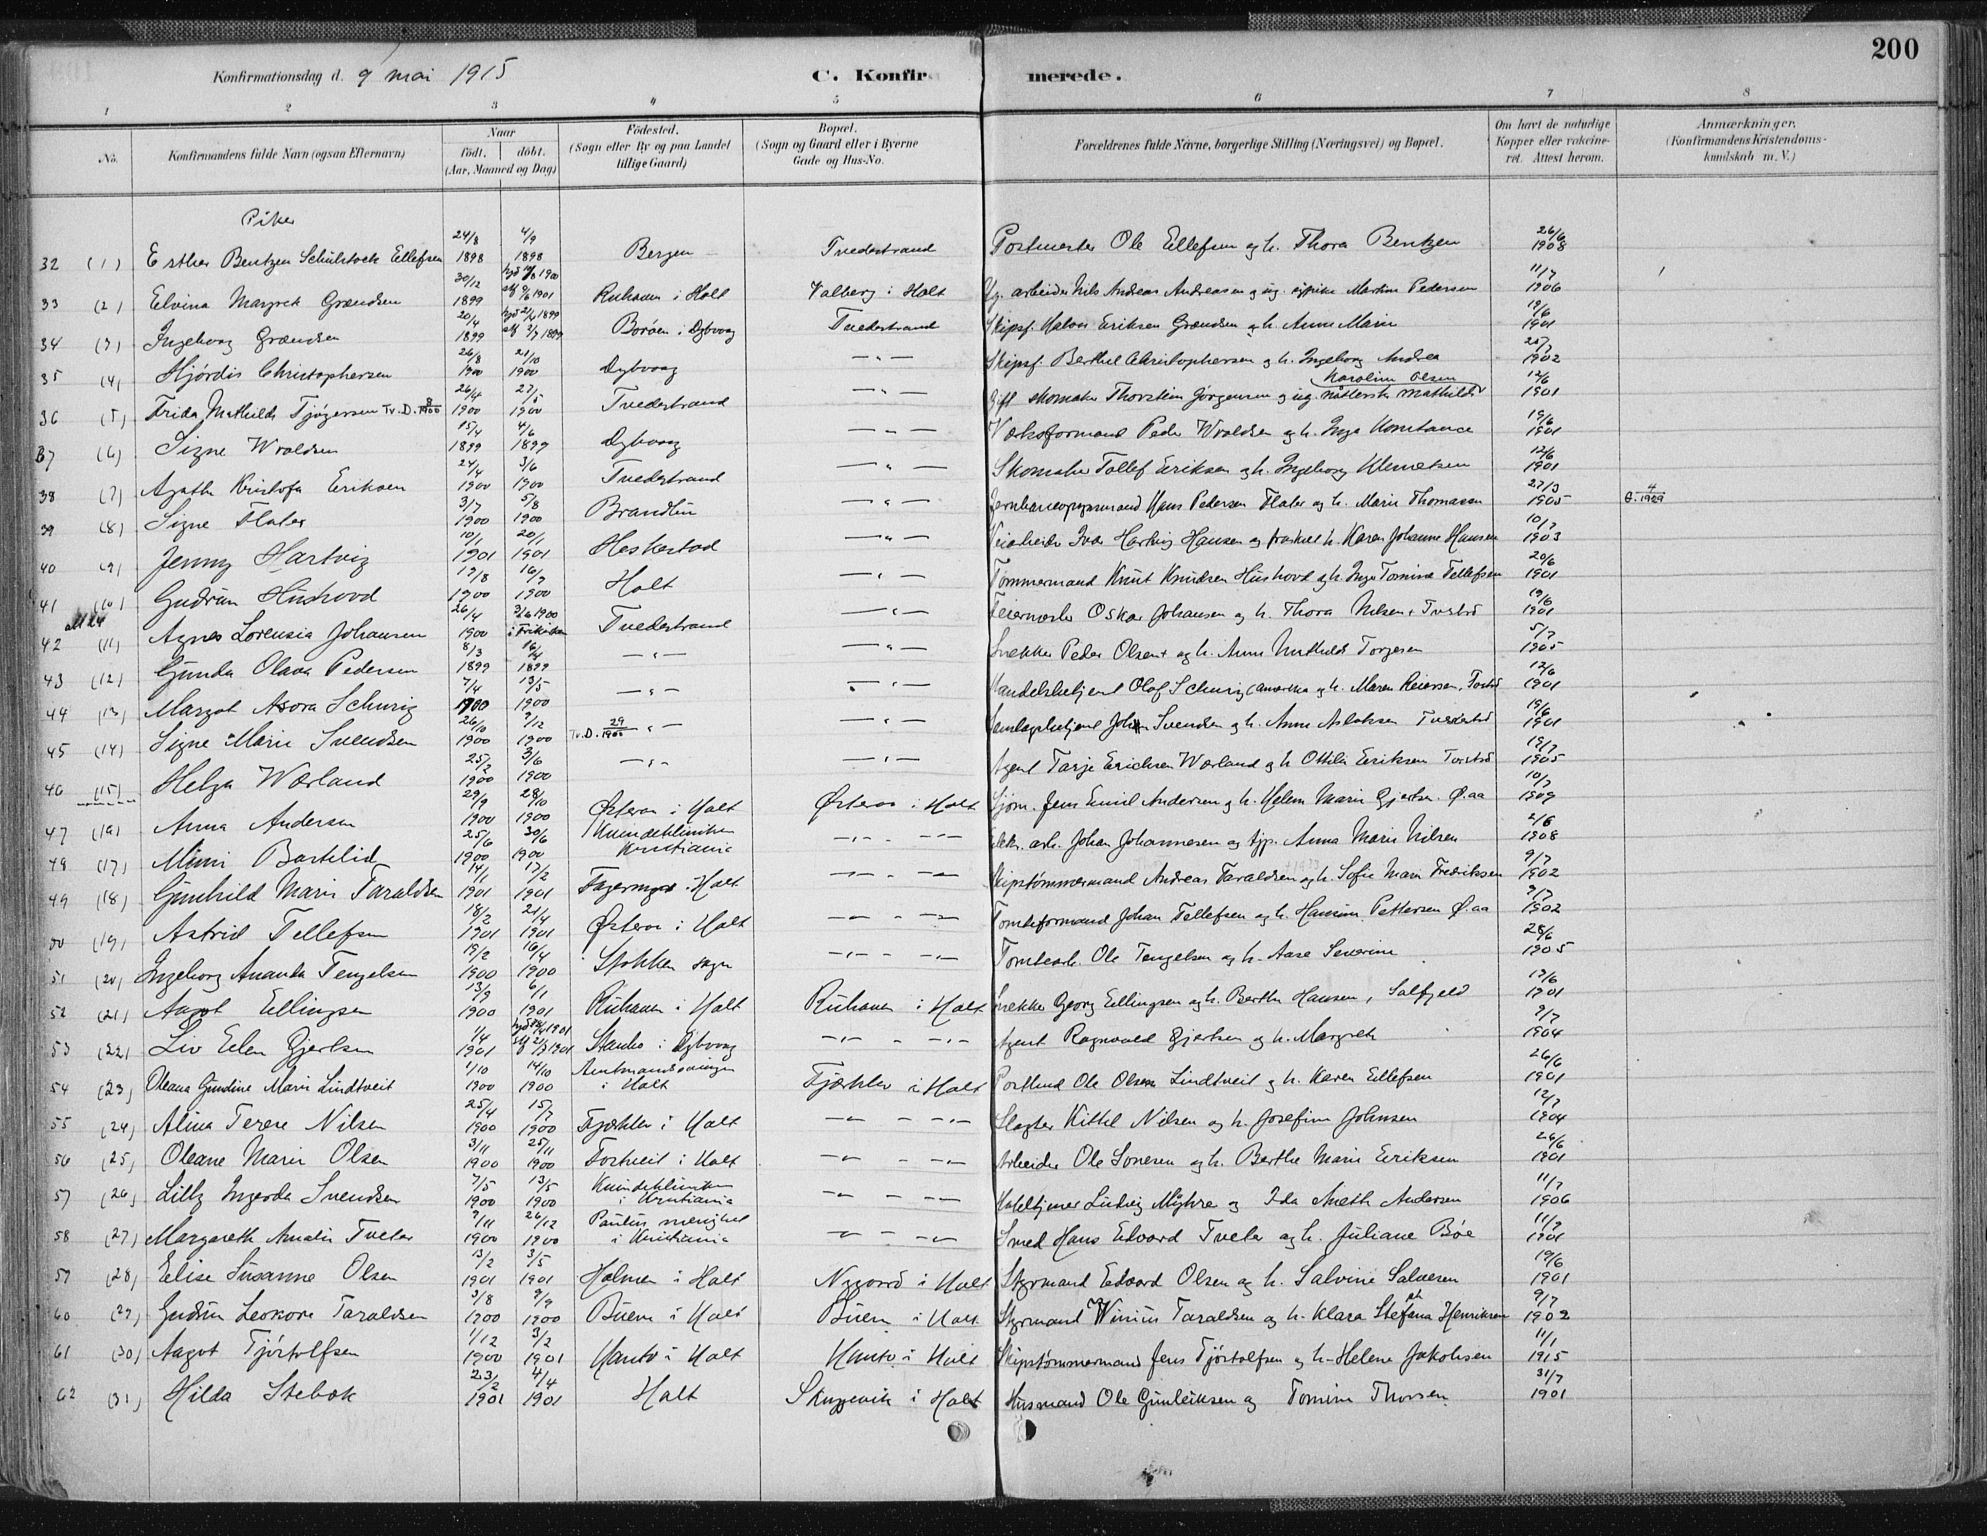 200
Konfirmationsdag d. 9 mai 1915 C. Konfirmerede.
1 2 3 4 5 6 7 8
No. Konfirmandens fulde Navn (ogsaa Efternavn) Naar født. døbt. (Aar, Maaned og Dag) Fødested. (Sogn eller By og paa Landet tillige Gaard) Bopæl. (Sogn og Gaard eller i Byerne Gade og Hus-No. Forældrenes fulde Navne, borgerlige Stilling (Næringsvei) og Bopæl. Om havt de naturlige Kopper eller vakcineret. Attest herom. Anmærkninger. (Konfirmandens Kristendomskundskab m. V.)
Piker
32 (1) Esther Bentzen Ellefsen 24/8 1898 4/9 1898 Bergen Tvedestrand Postmester Ole Ellefsen og h. Thora Bentzen 26/6 1908
33 (2) Elvina Margrete Grændsen 30/12 1899 Ruhaven i Holt Valberg i Holt arbeider Nils Andreas Andreasen og Martine Pedersen 11/7 1906
34 (3) Ingeborg Grændsen 20/4 1899 Borøen i Dybvaag Tvedestrand Skipsf. Halvor Eriksen Grændsen og h. Anne Marie 19/6 1901
35 (4) Hjørdis Christophersen 26/8 1900 21/10 1900 Dybvaag — " — Skipsf. Berthel Christophersen og h. Ingeborg Andrea 25/7 1902
36 (5) Frida Mathilde Tjøgersen Tv. D. 8/1900 26/4 1900 27/5 1900 Tvedestrand — " — Gift skomaker Thorstein Jørgensen og Mathilde Karoline Olsen 12/6 1901
37 (6) Signe Wroldsen 15/4 1899 4/6 1899 Dybvaag — " — Værksformand Peder Wroldsen og h. Inga Konstance 19/6 1901
38 (7) Agathe Kristofa Eriksen 24/4 1900 3/6 1900 Tvedestrand — " — Skomaker Tollef Eriksen og h. Ingeborg Klemetsen 12/6 1901
39 (8) Signe Flater 3/7 1900 5/8 1900 Brandbu — " — Hans Pedersen Flater og h. Marie Thomassen 27/3 1905 4/1909
40 (9) Jenny Hartvig 10/1 1901 20/1 1901 Heskestad — " — Veiarbeider Ivar Hartvig Hansen og fraskilt h. Karen Johanne Hansen 10/7 1903
41 (10) Gudrun Hushovd 19/8 1900 16/9 1900 Holt — " — Tømmermand Knut Knudsen Hushovd og h. Inga Tomine Tellefsen 20/6 1901
42 (11) Agnes Lorensia Johansen 26/4 1900 3/6 1900 i Frikirken Tvedestrand — " — Feiermester Oskar Johansen og h. Thora Nilsen, Tvestrd 19/6 1901
43 (12) Gunda Olava Pedersen 8/3 1899 16/4 1899 — " — — " — Snekker Peder Olsen + og h. Anne Mathilde Torjesen 5/7 1905
44 (13) Margot Asora Schurig 7/4 1900 13/5 1900 — " — — " — Handelsbetjent Olaf Schurig (amerika og h. Maren Reiersen, 12/6 1901
45 (14) Signe Marie Svendsen 26/10 1900 9/12 1900 Tv. D. 29/1900 — " — — " — Samlagsbetjent John Svendsen og h. Anne Aslaksen Tvedestrd 19/6 1901
46 (15) Helga Wærland 25/2 1900 3/6 1900 — " — — " — Agent Tarje Erichsen Wærland og h. Ottilie Eriksen 19/7 1905
47 (16) Anna Andersen 29/9 1900 28/10 1900 Østeraa i Holt Østeraa i Holt Sjøm. Jens Emil Andersen og h. Helene Marie Gjertsen. Ø.aa 10/7 1909
48 (17) Mimi Bartelid 25/6 1900 30/6 1900 Kvindeklinikken Kristiania — " — Johan Johannesen og Anna Marie Nilsen 2/6 1908
49 (18) Gunhild Marie Taraldsen 14/1 1901 17/2 1901 Fagermyr i Holt — " — Skipstømmermand Andreas Taraldsen og h. Sofie Marie Fredriksen 9/7 1902
50 (19) Astrid Tellefsen 18/3 1901 21/4 1901 Østeraa i Holt — " — Tomteformand Johan Tellefsen og h. Hansine Pettersen Ø.aa 9/7 1902
51 (20) Ingeborg Amanda Tengelsen 19/2 1900 16/4 1900 Stokken sogn — " — Tomtearb. Ole Tengelsen og h. Aase Severine 28/6 1905
52 (21) Aagot Ellingsen 13/9 1900 6/1 1901 Ruhaven i Holt Ruhaven i Holt Snekker Georg Ellingsen og h. Berthe Hansen, Solfjeld 19/6 1901
53 (22) Liv Elen Gjertsen 1/4 1901 i Dybvaag — " — Agent Ragnvald Gjertsen og h. Margrete 9/7 1904
54 (23) Oleana Gundine Marie Lindtveit 1/10 1900 14/10 1900 Amtmandsvingen i Holt Fjækler i Holt Postbud Ole Olsen Lindtveit og h. Karen Ellefsen 26/6 1901
55 (24) Alina Terese Nilsen 25/4 1900 15/7 1900 Fjækler i Holt — " — Slagter Kittel Nilsen og h. Josefine Johnsen 12/7 1904
56 (25) Oleane Marie Olsen 3/11 1900 25/11 1900 Fostveit i Holt — " — Arbeider Ole Sonesen og h. Berthe Marie Eriksen 26/6 1901
57 (26) Lilly Ingerda Svendsen 7/5 1900 13/5 1900 Kvindeklinikken i Kristiania — " — Hoteltjener Ludvig Myhre og Ida Aneth Andersen 11/7 1906
58 (27) Margareth Amalie Tveter 9/11 1900 26/12 1900 Paulus menighet i Kristiania — " — Smed Hans Edvard Tveter og h. Juliane Bøe 11/7 1901
59 (28) Elise Susanne Olsen 13/2 1901 3/5 1901 Holmen i Holt Nygaard i Holt Styrmand Edvard Olsen og h. Salvine Salvesen 19/6 1901
60 (29) Gudrun Leonore Taraldsen 3/8 1900 9/9 1900 Buene i Holt Buene i Holt Styrmand Winius Taraldsen og h. Klara Stefana Henriksen 9/7 1902
61 (30) Aagot Tjøstolfsen 1/12 1900 3/2 1901 Hanto i Holt Hanto i Holt Skipstømmermand Jens Tjøstolfsen og h. Helene Jakobsen 11/1 1915
62 (31) Hilda Stebok 23/2 1901 4/4 1901 Holt Skuggevik i Holt Husmand Ole Gunleiksen og Tomine Thorsen 31/7 1901